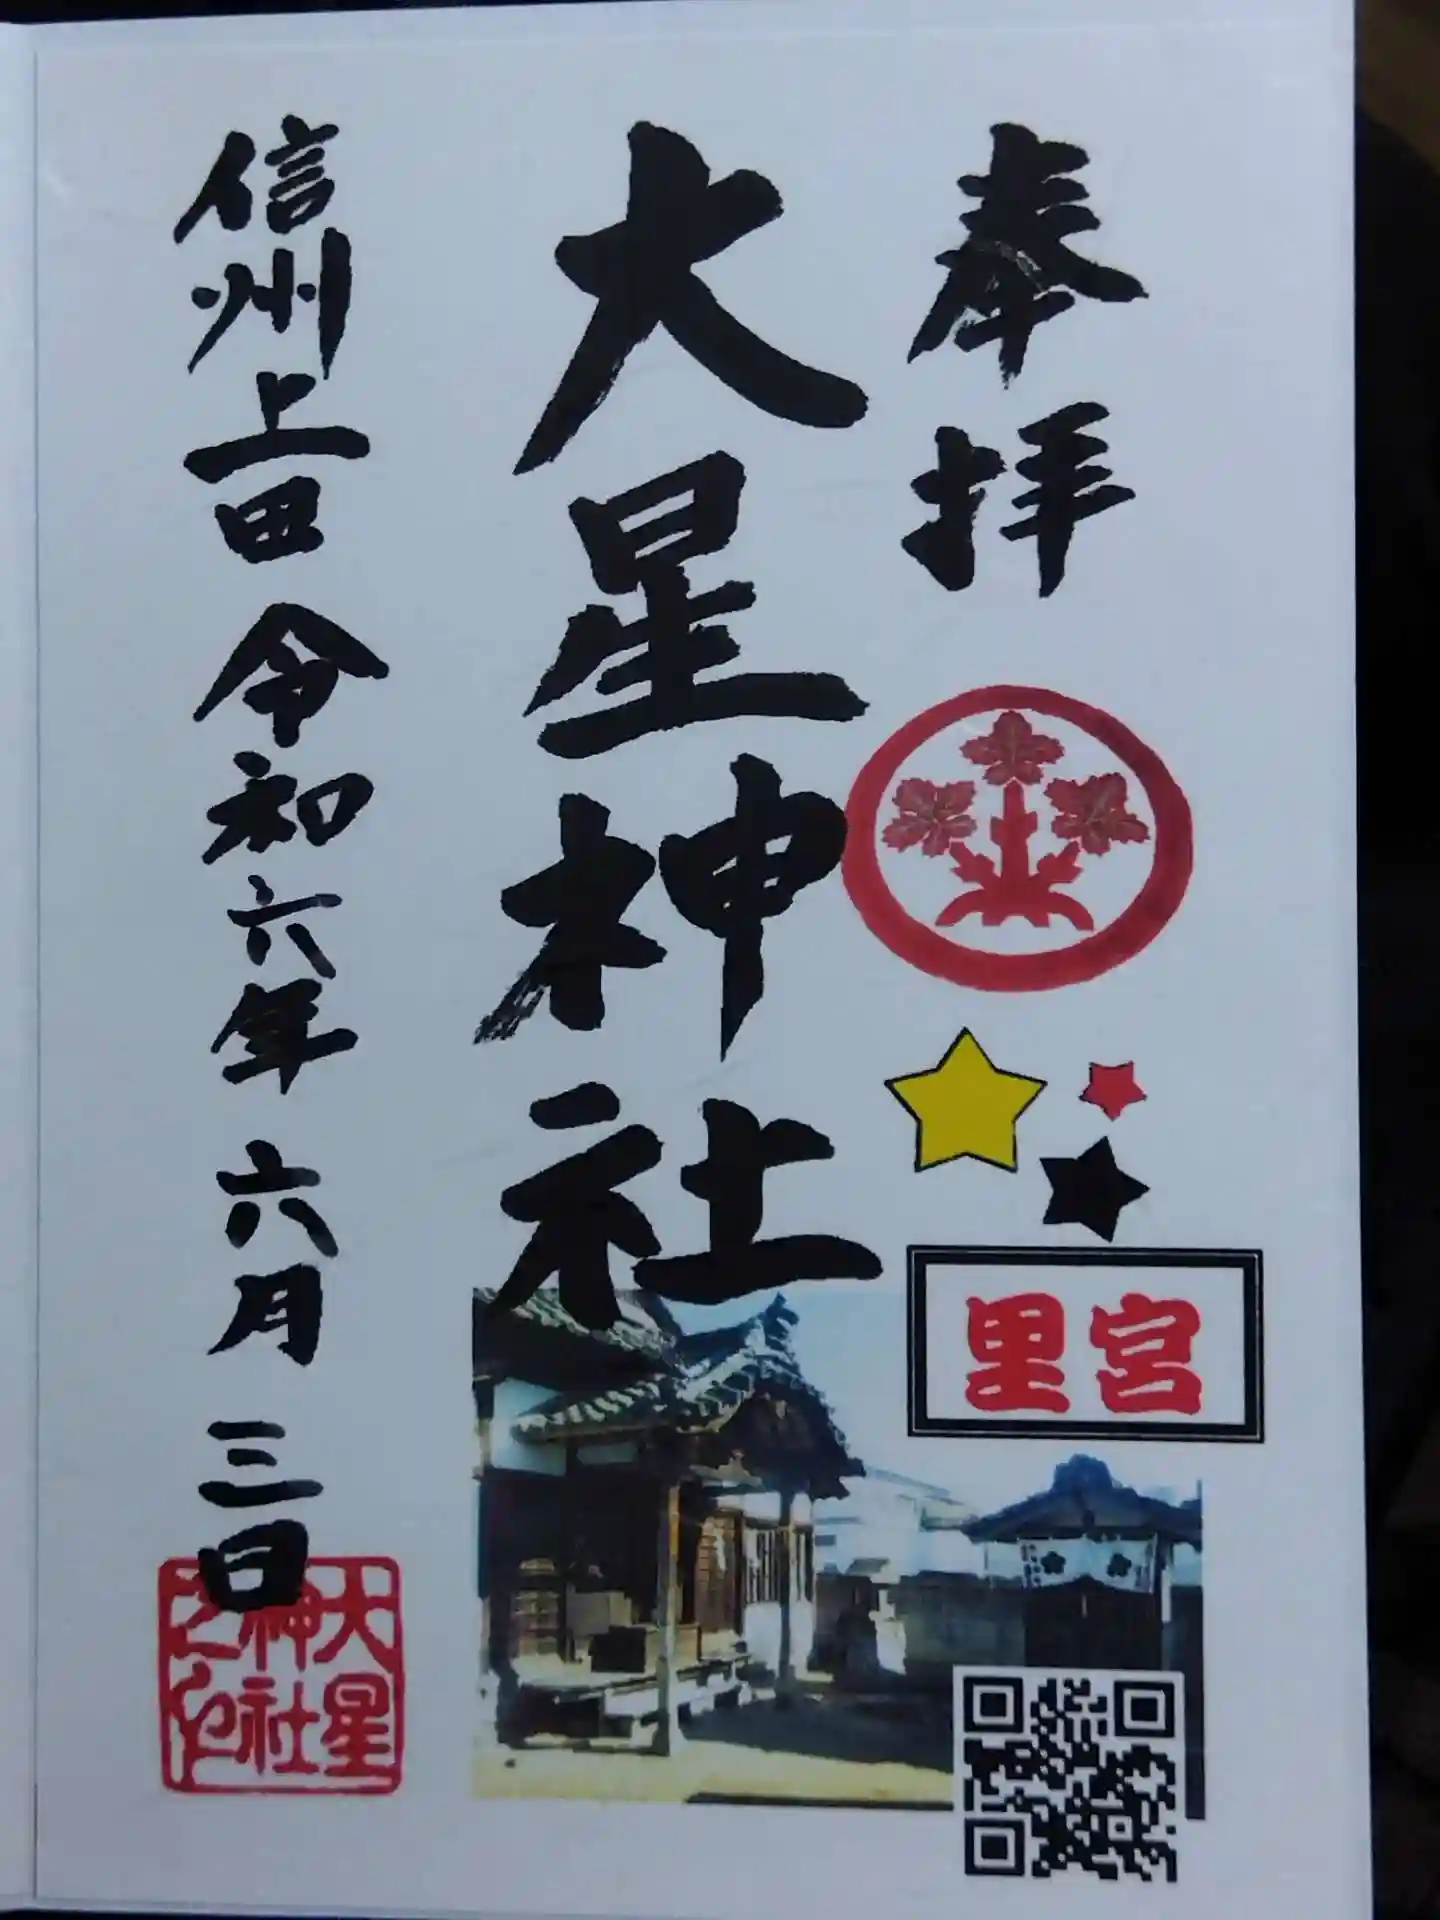 奉拝
里宮
大星神社
信州上田 令和六年 六月 三日
大星
神社
之印